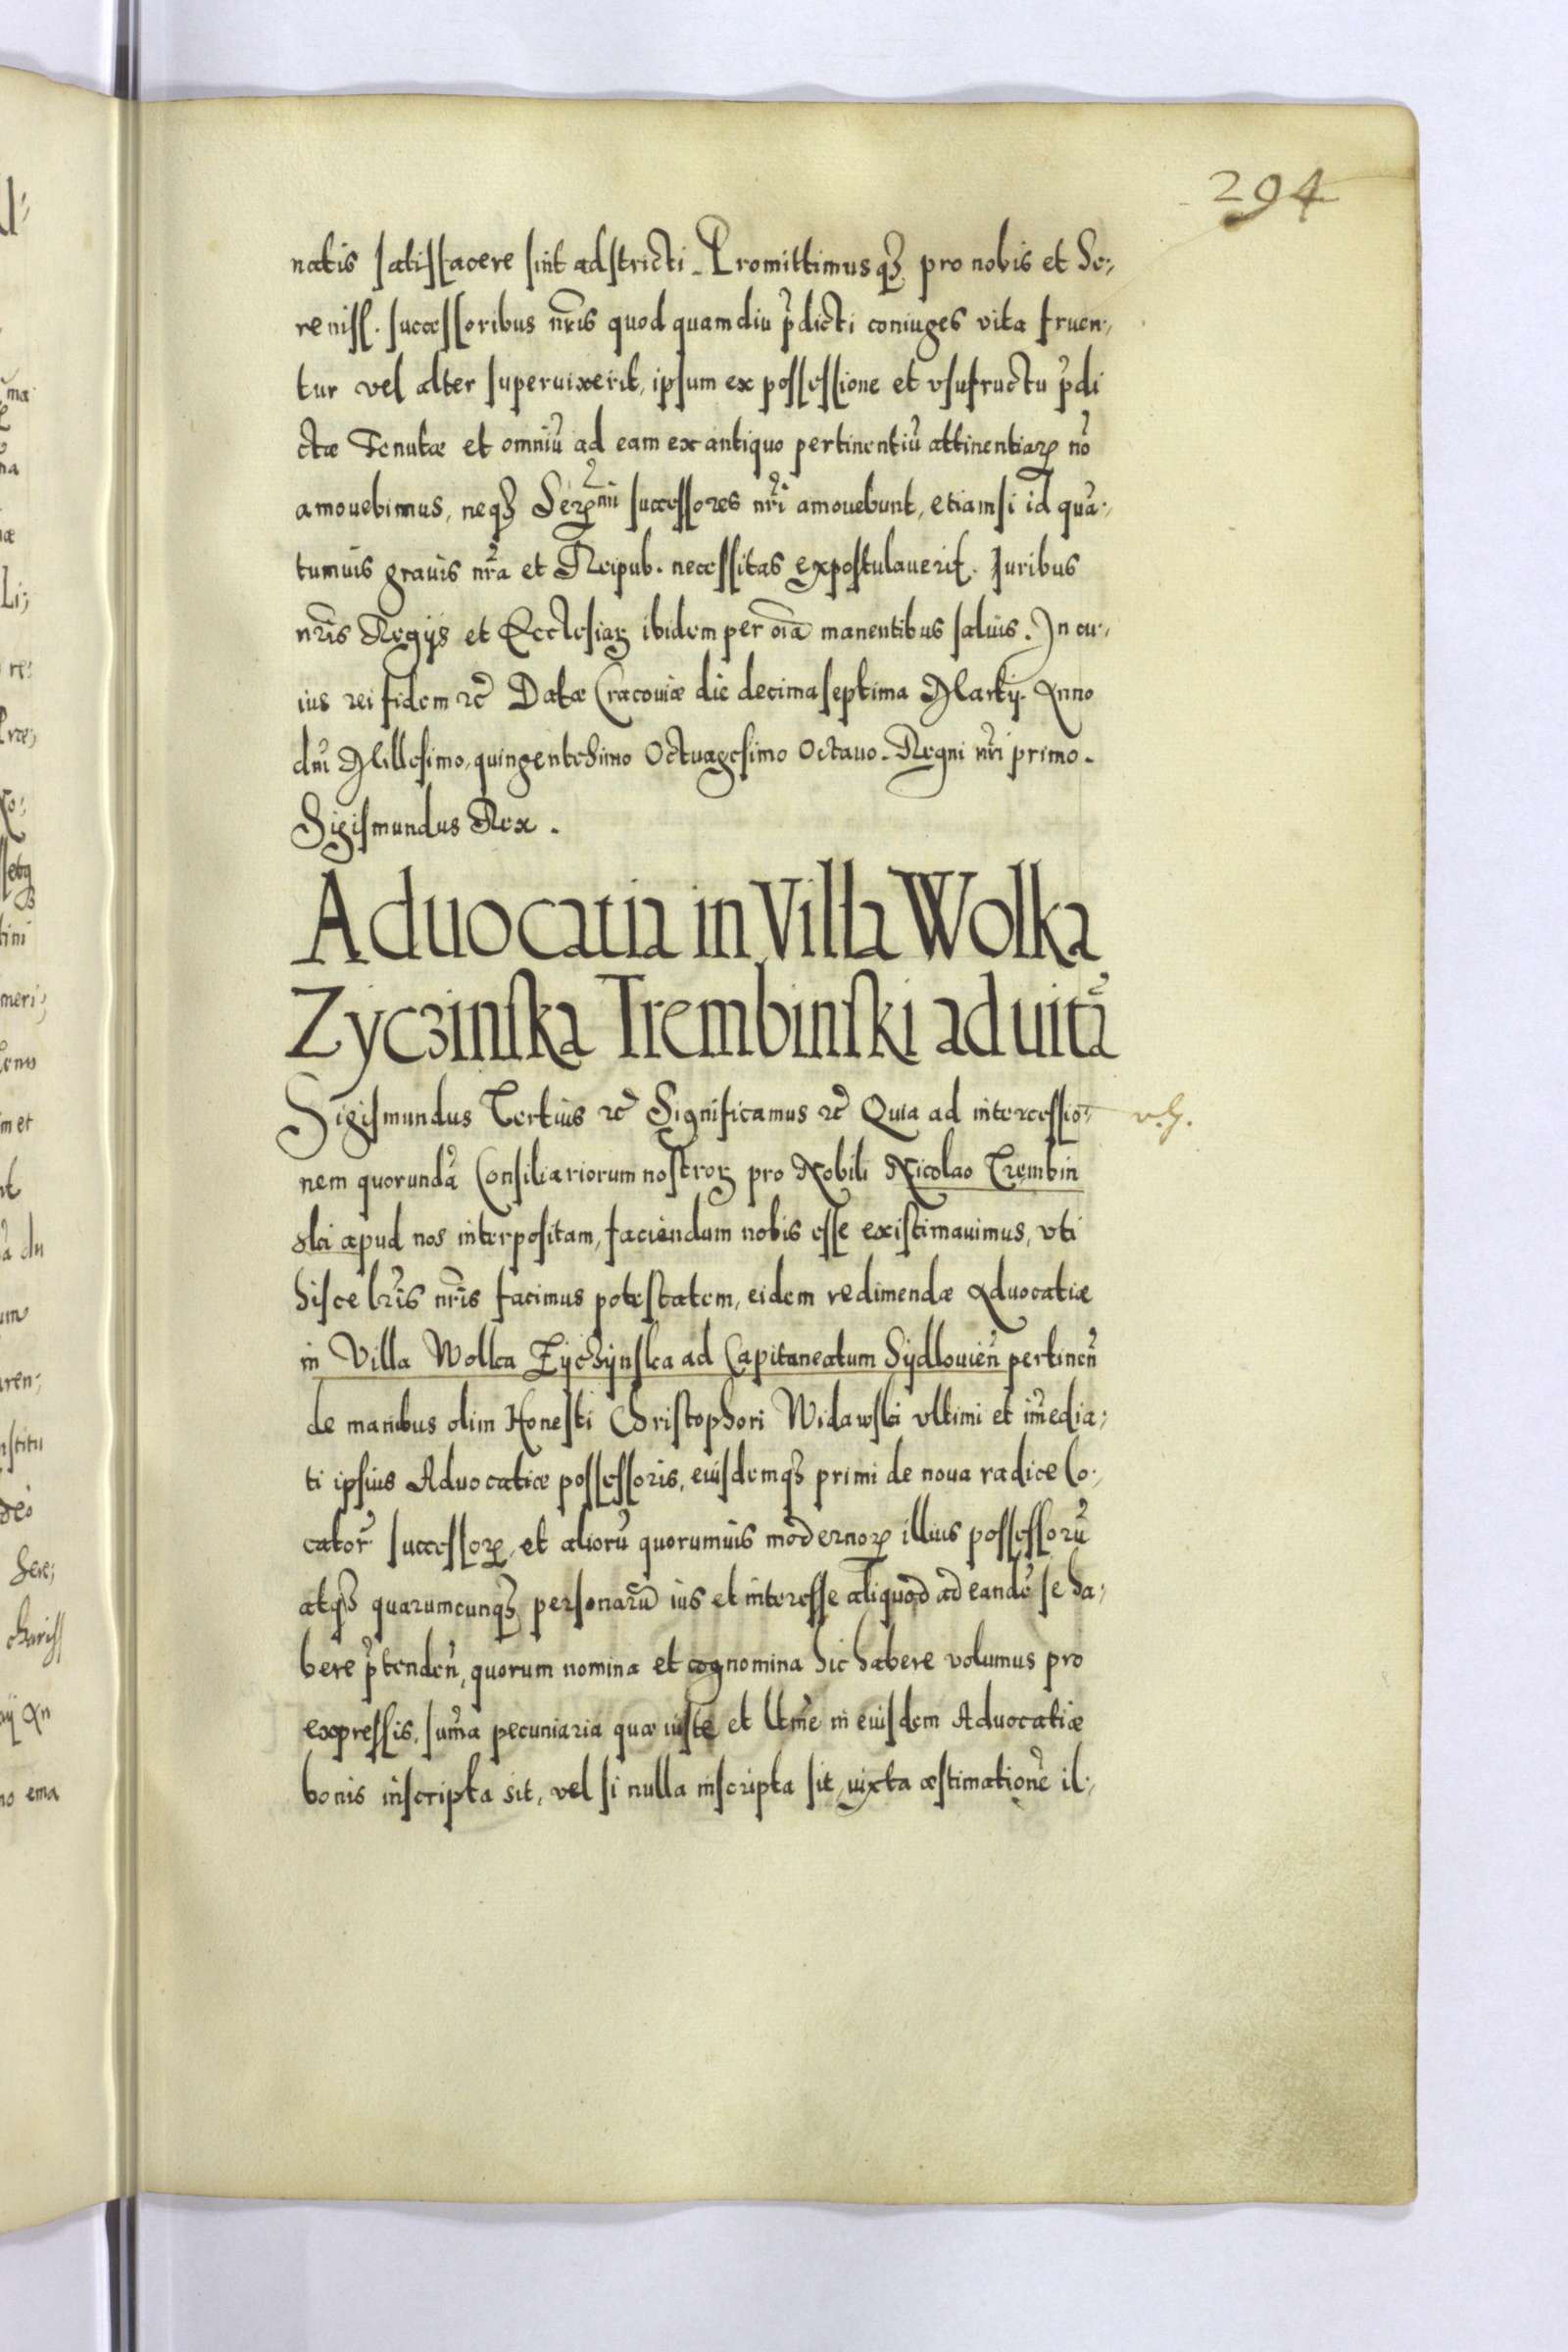 294
natis satisfacere sint adstricti. Promittimusqꝫ pro nobis et Se:,
reniss. successoribus nr̃is quod quamdiu p̃dicti coniuges vita fruen:,
tur vel alter superuixerit, ipsum ex possessione et vsufructu p̃di
ctæ Tenutæ et omniũ ad eam ex antiquo pertinentiũ attinentiaꝝ nõ
amouebimus, neqꝫ Seꝝmi successores nr̃i amouebunt, etiamsi id quã:,
tumuis grauis nr̃a et Reipub. necessitas expostulauerit. Iuribus
nr̃is Regijs et Ecclesiaꝝ ibidem per oĩa manentibus saluis. In cu:,
ius rei fidem ꝛc̃ Datæ Cracouiæ die decimaseptima Martij. Anno
dñi Millesimo, quingentesimo Octuagesimo Octauo. Regni nr̃i primo.
Sigismundus Rex.
Aduocatia in Villa Wolka
Zyczinska Trembinski ad uitã
Sigismundus Tertius ꝛc̃ Significamus ꝛc̃ Quia ad intercessio:,
nem quorundã Consiliariorum nostroꝝ pro Nobili Nicolao Trembin
ski apud nos interpositam, faciendum nobis esse existimauimus, vti
hisce lr̃is nr̃is facimus potestatem, eidem redimendæ Aduocatiæ
in Villa Wolka Zyczÿnska ad Capitaneatum Sÿdlouieñ pertineñ
de manibus olim Honesti Christophori Widawski vltimi et im̃edia:,
ti ipsius Aduocatiæ possessoris, eiusdemqꝫ primi de noua radice lo:,
cator̃ successoꝝ, et alioru᷃ quorumuis modernoꝝ illius possessorũ
atqꝫ quarumcunqꝫ personarũ ius et interesse aliquod ad eandẽ se ha:,
bere p̃tendeñ, quorum nomina et cognomina hic habere volumus pro
expressis, sum̃a pecuniaria quæ iuste et ltm̃e in eiusdem Aduocatiæ
bonis inscripta sit, vel si nulla inscripta sit, iuxta æstimationẽ il:,